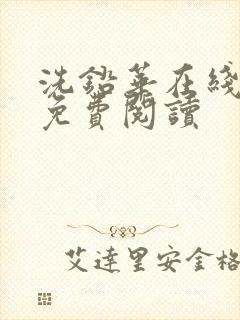 洗鉛華在綫
免費閱讀
艾達里安金格